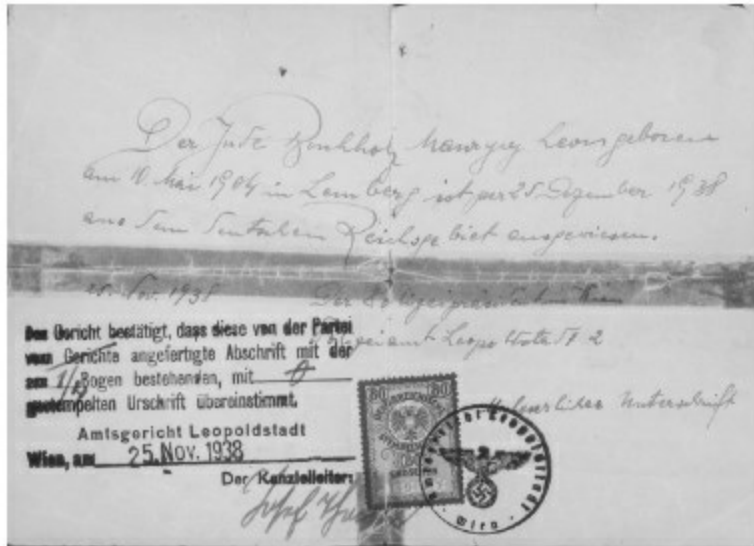 Der Jude Buchholz Maurycy Leon geboren
am 10. Mai 1904 in Lemberg ist per 25 Dezember 1938
aus dem deutschen Reichsgebiet ausgewiesen.
25. Nov. 1938 Der Polizeipräsident Wien
Polizeiamt Leopoldstadt 2
Unleserliche Unterschrift
Das Gericht bestätigt, dass diese von der Partei
vom Gerichte angefertigte Abschrift mit der
aus 1/2 Bogen bestehenden, mit 0
gestempelten Urschrift übereinstimmt.
Amtsgericht Leopoldstadt
Wien, am 25. Nov. 1938
Der Kanzleileiter:
Josef
80 80
Amtsgericht Leopoldstadt
Wien